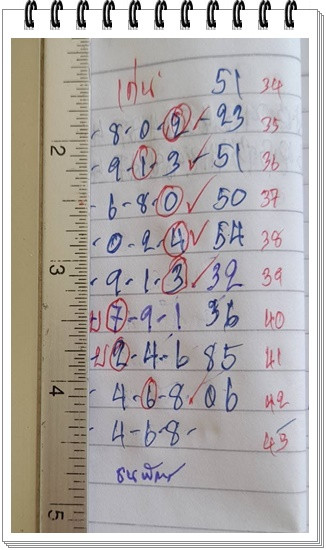 เด่น 51 34
8-0-9 ✓ 23 35
9-1-3 ✓ 51 36
6-8-0 ✓ 50 37
0-2-4 ✓ 54 38
9-1-3 ✓ 32 39
บ 7-9-1 36 40
บ 2-4-6 85 41
4-6-8 ✓ 06 42
4-6-8- 43
2
3
4
5